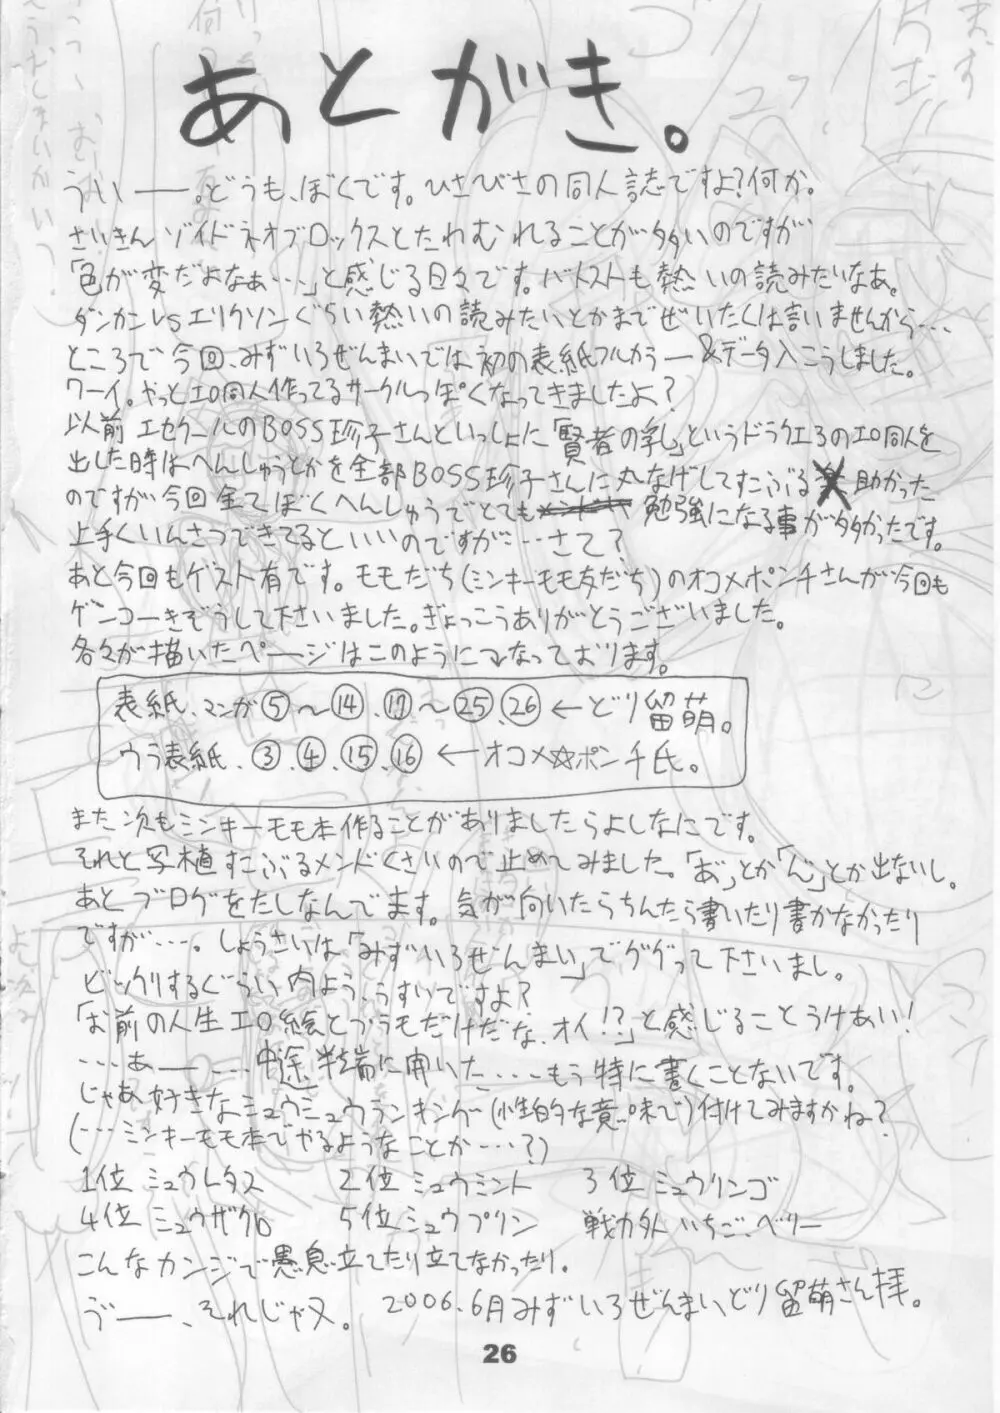 あとがき。
うぃー。どうも、ぼくです。ひさびさの同人誌ですよ?何か。
さいきんゾイドネオブロックスとたわむれることが多いのですが
「色が変だよなぁ…」と感じる日々です。バトストも熱いの読みたいなぁ。
ダンカンvsエリクソンぐらい熱いの読みたいとかまでぜいたくは言いませんから…
ところで今回、みずいろぜんまいでは初の表紙フルカラー&データ入こうしました。
ワーイ。やっとエロ同人作ってるサークルっぽくなってきましたよ?
以前エセクールのBOSS珍子さんといっしょに「賢者の乳」というドラクエ3のエロ同人を
出した時はへんしゅうとかを全部BOSS珍子さんに丸なげしてすこぶる助かった
のですが今回全てぼくへんしゅうでとても勉強になる事が多かったです。
上手くいんさつできてるといいのですが…さて?
あと今回もゲスト有です。モモだち(ミンキーモモ友だち)のオコメポンチさんが今回も
ゲンコーきぞうして下さいました。ぎょっこうありがとうございました。
各々が描いたページはこのようになっております。
表紙、マンガ⑤〜⑭、⑰〜㉕、㉖←どり留萌。
ウラ表紙、③、④、⑮、⑯←オコメ☆ポンチ氏。
また次もミンキーモモ本作ることがありましたらよしなにです。
それと写植すこぶるメンドくさいので止めてみました。「あ゛」とか「ん゛」とか出ないし。
あとブログをたしなんでます。気が向いたらちんたら書いたり書かなかったり
ですが…。しょうさいは「みずいろぜんまい」でググって下さいまし。
ビックリするぐらい内よううすいですよ?
「お前の人生エロ絵とプラモだけだな、オイ!?」と感じることうけあい!
…あー…中途半端に開いた…もう特に書くことないです。
じゃあ好きなミュウミュウランキング(性的な意味で)付けてみますかね?
(…ミンキーモモ本でやるようなことか…?)
1位 ミュウレタス 2位 ミュウミント 3位 ミュウリンゴ
4位 ミュウザクロ 5位 ミュウプリン 戦力外 いちご、ベリー
こんなカンジで愚息立てたり立てなかったり。
ゔー、それじゃヌ。 2006.6月みずいろぜんまい、どり留萌さん拝。
26